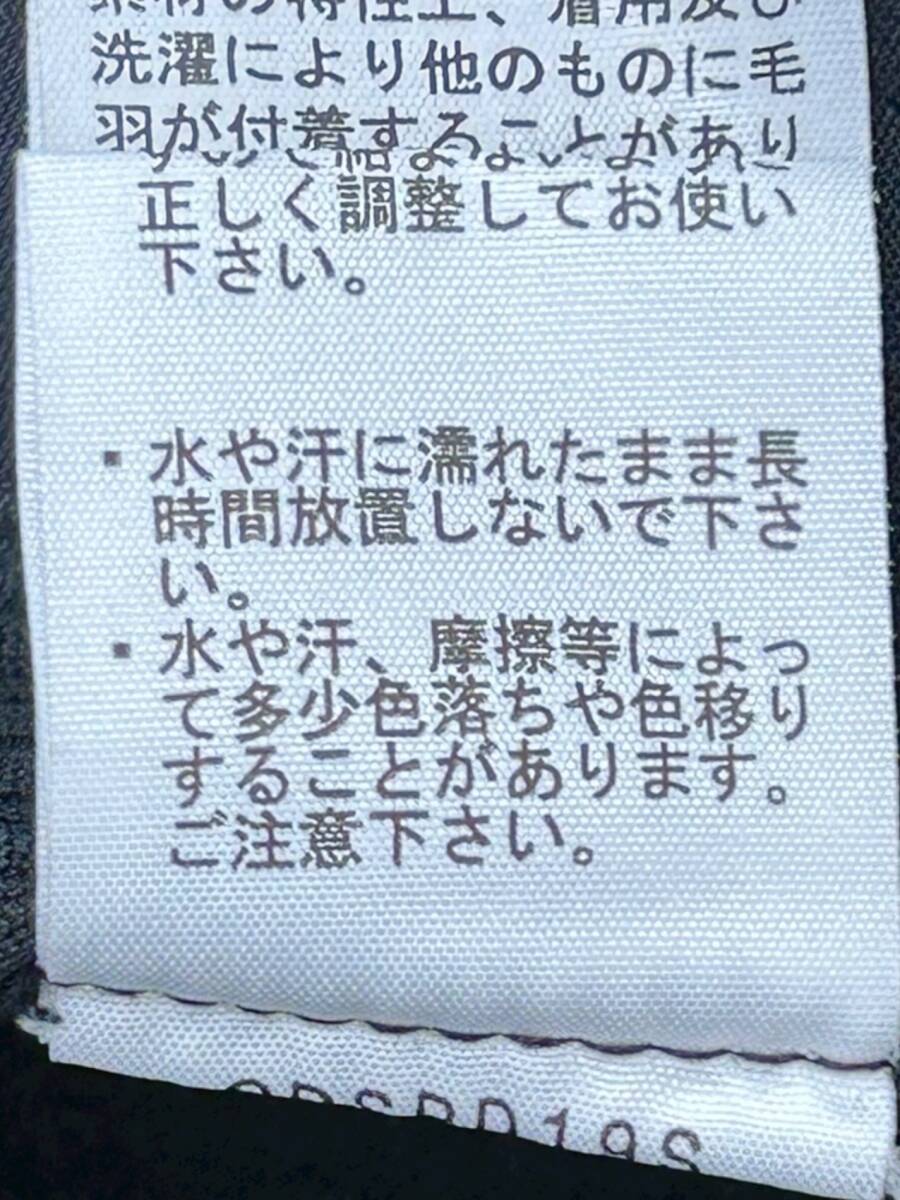 素材の特性上、着用及び
洗濯により他のものに毛
羽が付着することがあり
正しく調整してお使い
下さい。
▪水や汗に濡れたまま長
時間放置しないで下さ
い。
▪水や汗、摩擦等によっ
て多少色落ちや色移り
することがあります。
ご注意下さい。